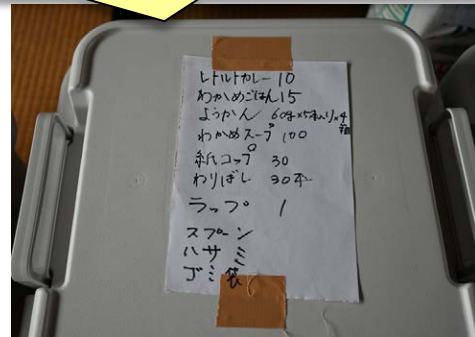 レトルトカレー 10
わかめごはん 15
ようかん 60g×5本入り×4箱
わかめスープ 100
紙コップ 30
わりばし 30本
ラップ 1
スプーン
ハサミ
ゴミ袋